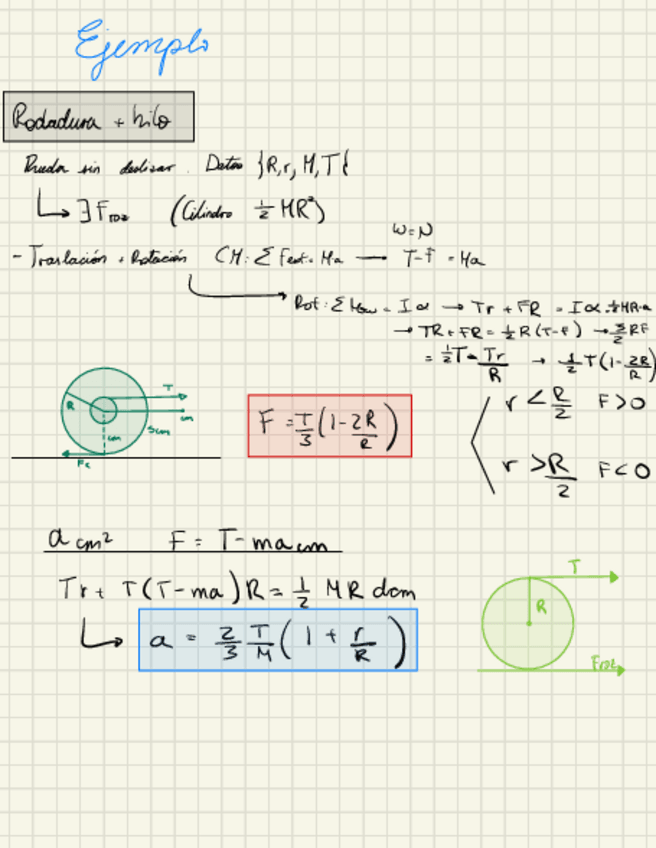 Ejemplo
Rodadura + hilo
Rueda sin deslizar. Datos {R,r,M,T{
↳ ∃ Froz (Cilindro ½ MR²)
W=N
- Traslación + Rotación CM: Σ Fext = Ma — T-F = Ma
Rot: Σ Mcm = I α → Tr + FR = I α = ½ MR·a
→ TR + FR = ½ R (T-F) → 3/2 RF
= ½ T - Tr/R → ½ T (1 - 2R/R)
T
R
cm
5cm
cm
Fr
F = T/3 (1 - 2R/R)
r < R/2 F>0
r > R/2 F<0
a cm² F = T - ma cm
Tr + T(T-ma)R = ½ MR dcm
↳ a = 2/3 T/M (1 + r/R)
T
R
Froz